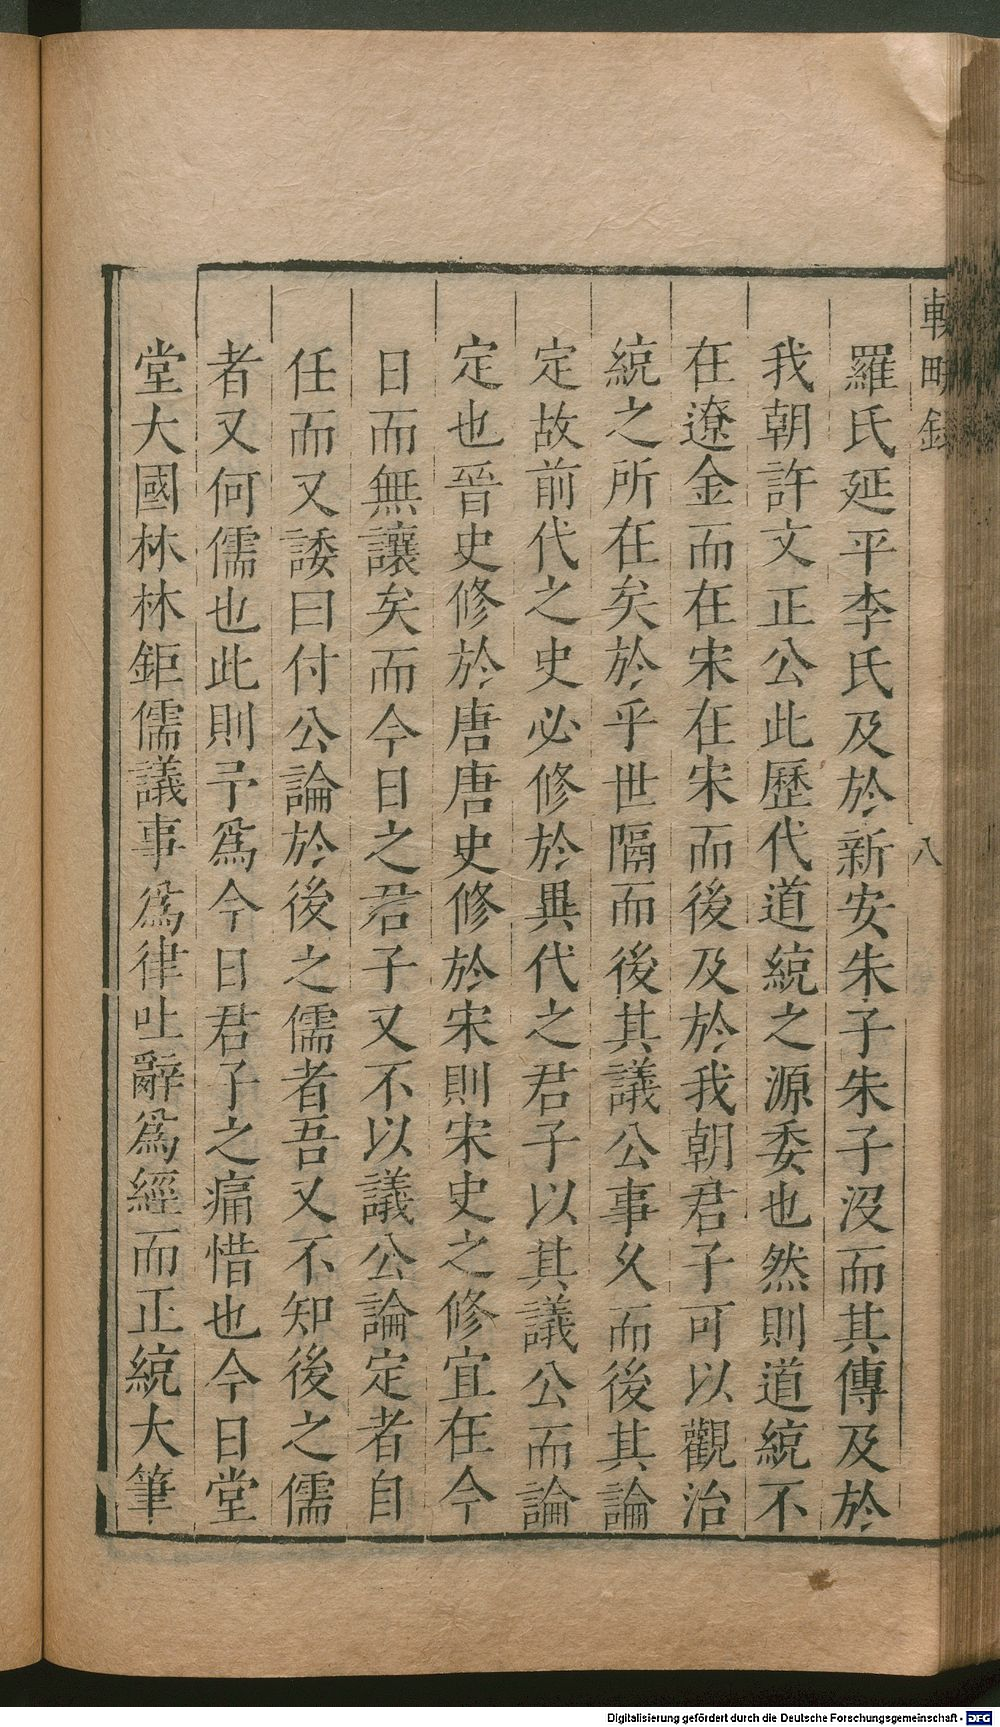 輟畊録
八
羅氏延平李氏及於新安朱子朱子沒而其傳及於
我朝許文正公此歷代道統之源委也然則道統不
在遼金而在宋在宋而後及於我朝君子可以觀治
統之所在矣於乎世隔而後其議公事久而後其論
定故前代之史必修於異代之君子以其議公而論
定也晉史修於唐唐史修於宋則宋史之修宜在今
日而無讓矣而今日之君子又不以議公論定者自
任而又諉曰付公論於後之儒者吾又不知後之儒
者又何儒也此則予爲今日君子之痛惜也今日堂
堂大國林林鉅儒議事爲律吐辭爲經而正統大筆
Digitalisierung gefördert durch die Deutsche Forschungsgemeinschaft - DFG